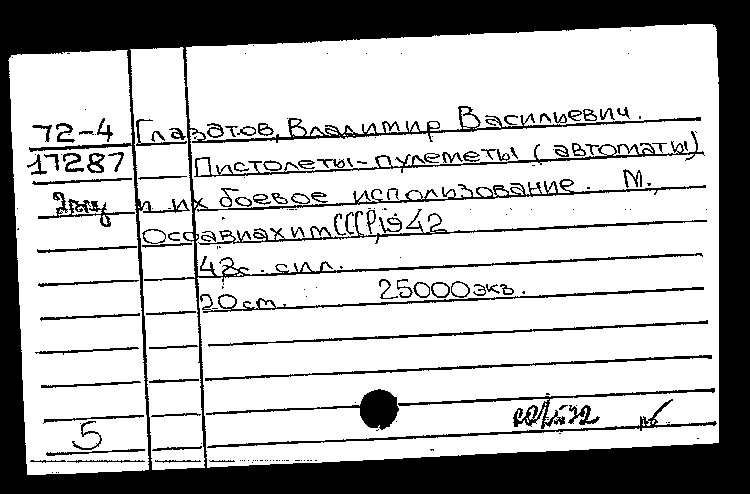 72-4 Глазатов, Владимир Васильевич.
17287 Пистолеты-пулеметы (автоматы)
и их боевое использование. М.,
Осоавиахим СССР, 1942
48с. силл.
20 см. 25000 экз.
5